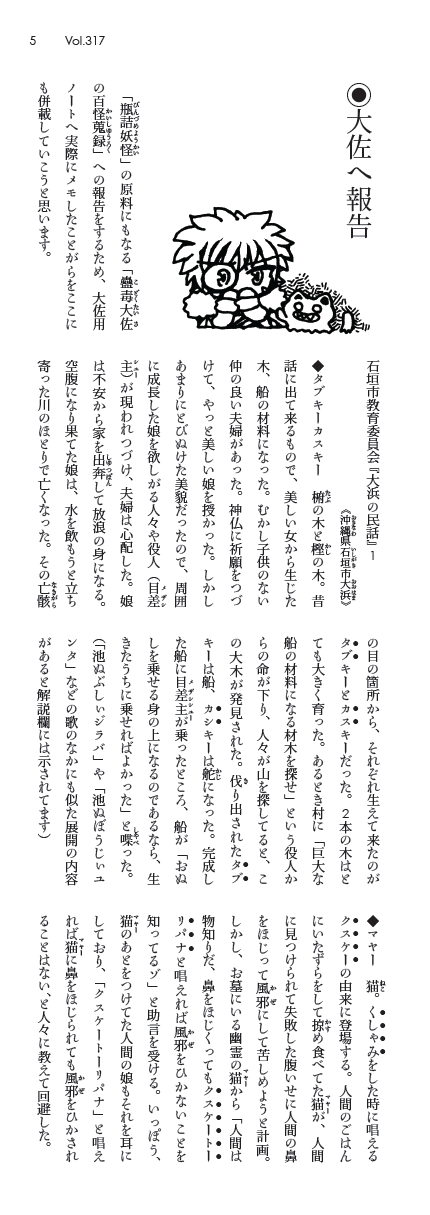 5 Vol.317
◉大佐へ報告
「瓶詰妖怪」の原料にもなる「蠱毒大佐
の百怪蒐録」への報告をするため、大佐用
ノートへ実際にメモしたことがらをここに
も併載していこうと思います。
石垣市教育委員会『大浜の民話』1
《沖縄県石垣市大浜》
◆タブキーカスキー　椨の木と樫の木。昔
話に出て来るもので、美しい女から生じた
木、船の材料になった。むかし子供のない
仲の良い夫婦があった。神仏に祈願をつづ
けて、やっと美しい娘を授かった。しかし
あまりにとびぬけた美貌だったので、周囲
に成長した娘を欲しがる人々や役人（目差
主）が現われつづけ、夫婦は心配した。娘
は不安から家を出奔して放浪の身になる。
空腹になり果てた娘は、水を飲もうと立ち
寄った川のほとりで亡くなった。その亡骸
の目の箇所から、それぞれ生えて来たのが
タブキーとカスキーだった。２本の木はと
ても大きく育った。あるとき村に「巨大な
船の材料になる材木を探せ」という役人か
らの命が下り、人々が山を探してると、こ
の大木が発見された。伐り出されたタブ
キーは船、カシキーは舵になった。完成し
た船に目差主が乗ったところ、船が「おぬ
しを乗せる身の上になるのであるなら、生
きたうちに乗せればよかった」と喋った。
（「池ぬぶしぃジラバ」や「池ぬぼうじぃユ
ンタ」などの歌のなかにも似た展開の内容
があると解説欄には示されてます）
◆マヤー　猫。くしゃみをした時に唱える
クスケーの由来に登場する。人間のごはん
にいたずらをして掠め食べてた猫が、人間
に見つけられて失敗した腹いせに人間の鼻
をほじって風邪にして苦しめようと計画。
しかし、お墓にいる幽霊の猫から「人間は
物知りだ、鼻をほじくってもクスケートー
リバナと唱えれば風邪をひかないことを
知ってるゾ」と助言を受ける。いっぽう、
猫のあとをつけてた人間の娘もそれを耳に
しており、「クスケートーリバナ」と唱え
れば猫に鼻をほじられても風邪をひかされ
ることはない、と人々に教えて回避した。